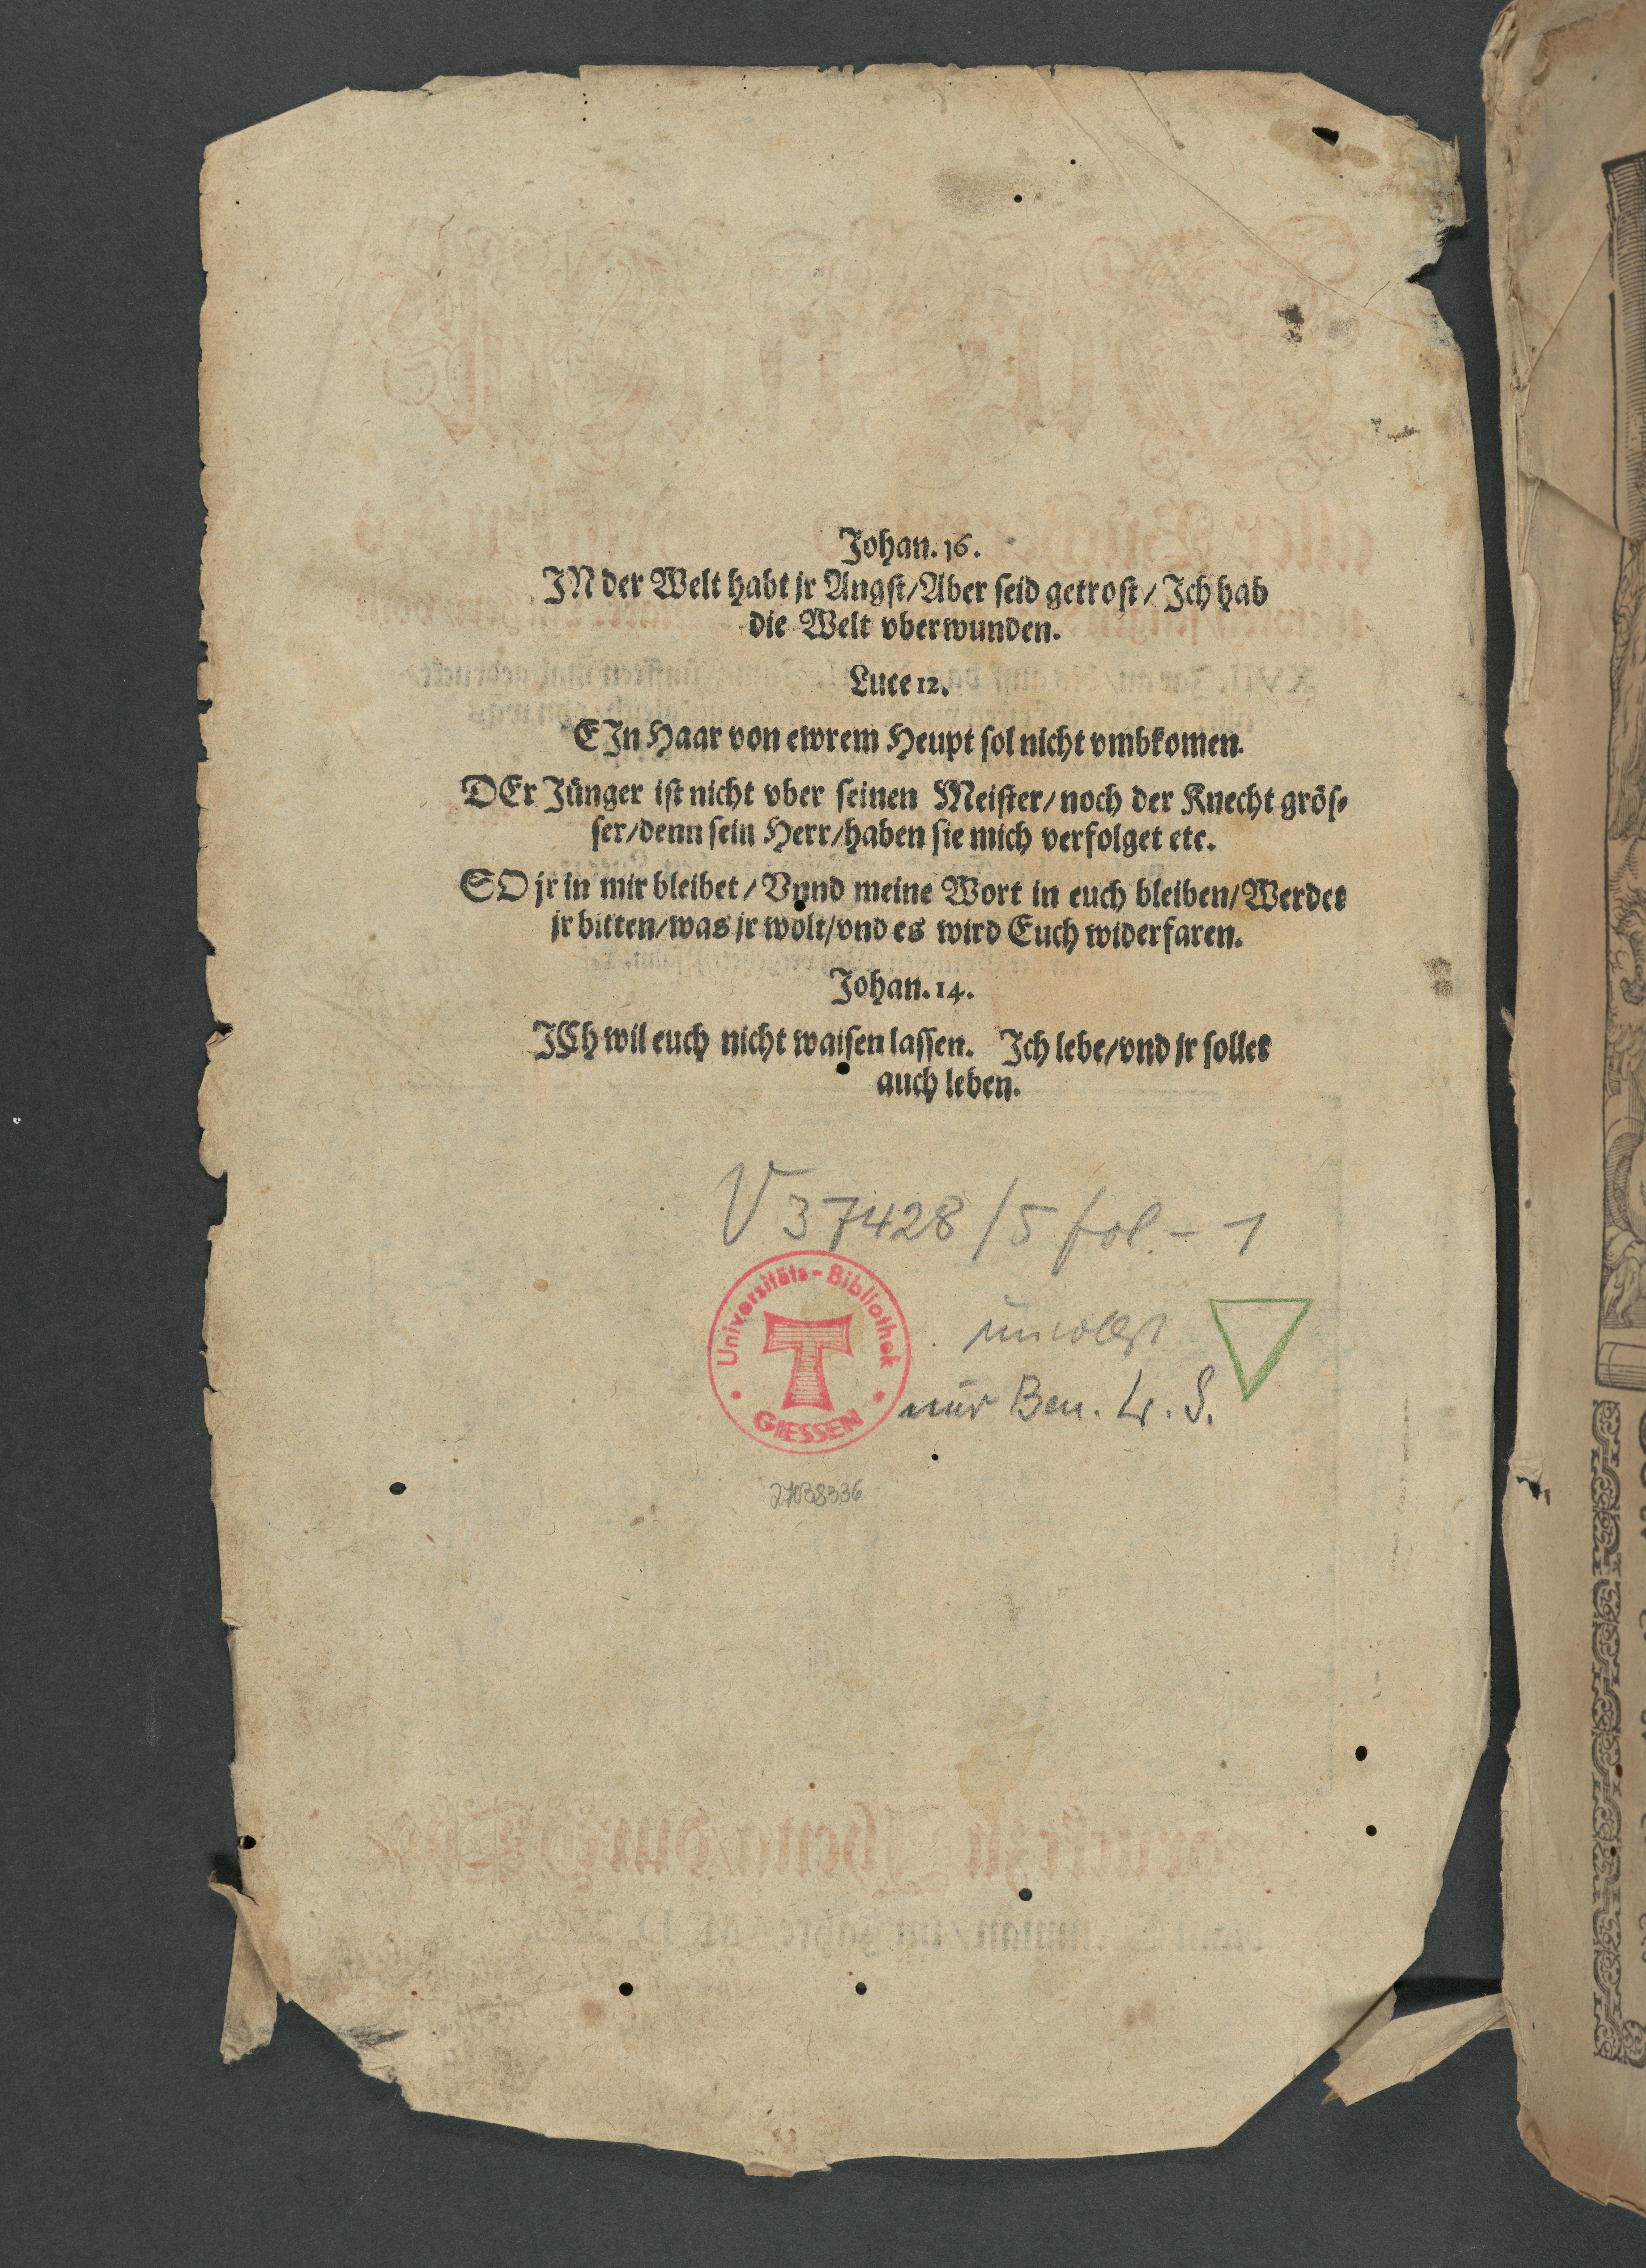 Johan. 16.
IN der Welt habt jr Angst/ Aber seid getrost/ Ich hab
die Welt vberwunden.
Luce 12.
EIn Haar von ewrem Heupt sol nicht vmbkomen.
DEr Jünger ist nicht vber seinen Meister/ noch der Knecht grös-
ser/ denn sein Herr/ haben sie mich verfolget etc.
SO jr in mir bleibet/ Vnnd meine Wort in euch bleiben/ Werdet
jr bitten/ was jr wolt/ vnd es wird Euch widerfaren.
Johan. 14.
ICh wil euch nicht waisen lassen. Ich lebe/ vnd jr sollet
auch leben.
V 37428/5 fol. - 1
Universitäts-Bibliothek
GIESSEN
unvollst
nur Ben. Ls. S.
27038336